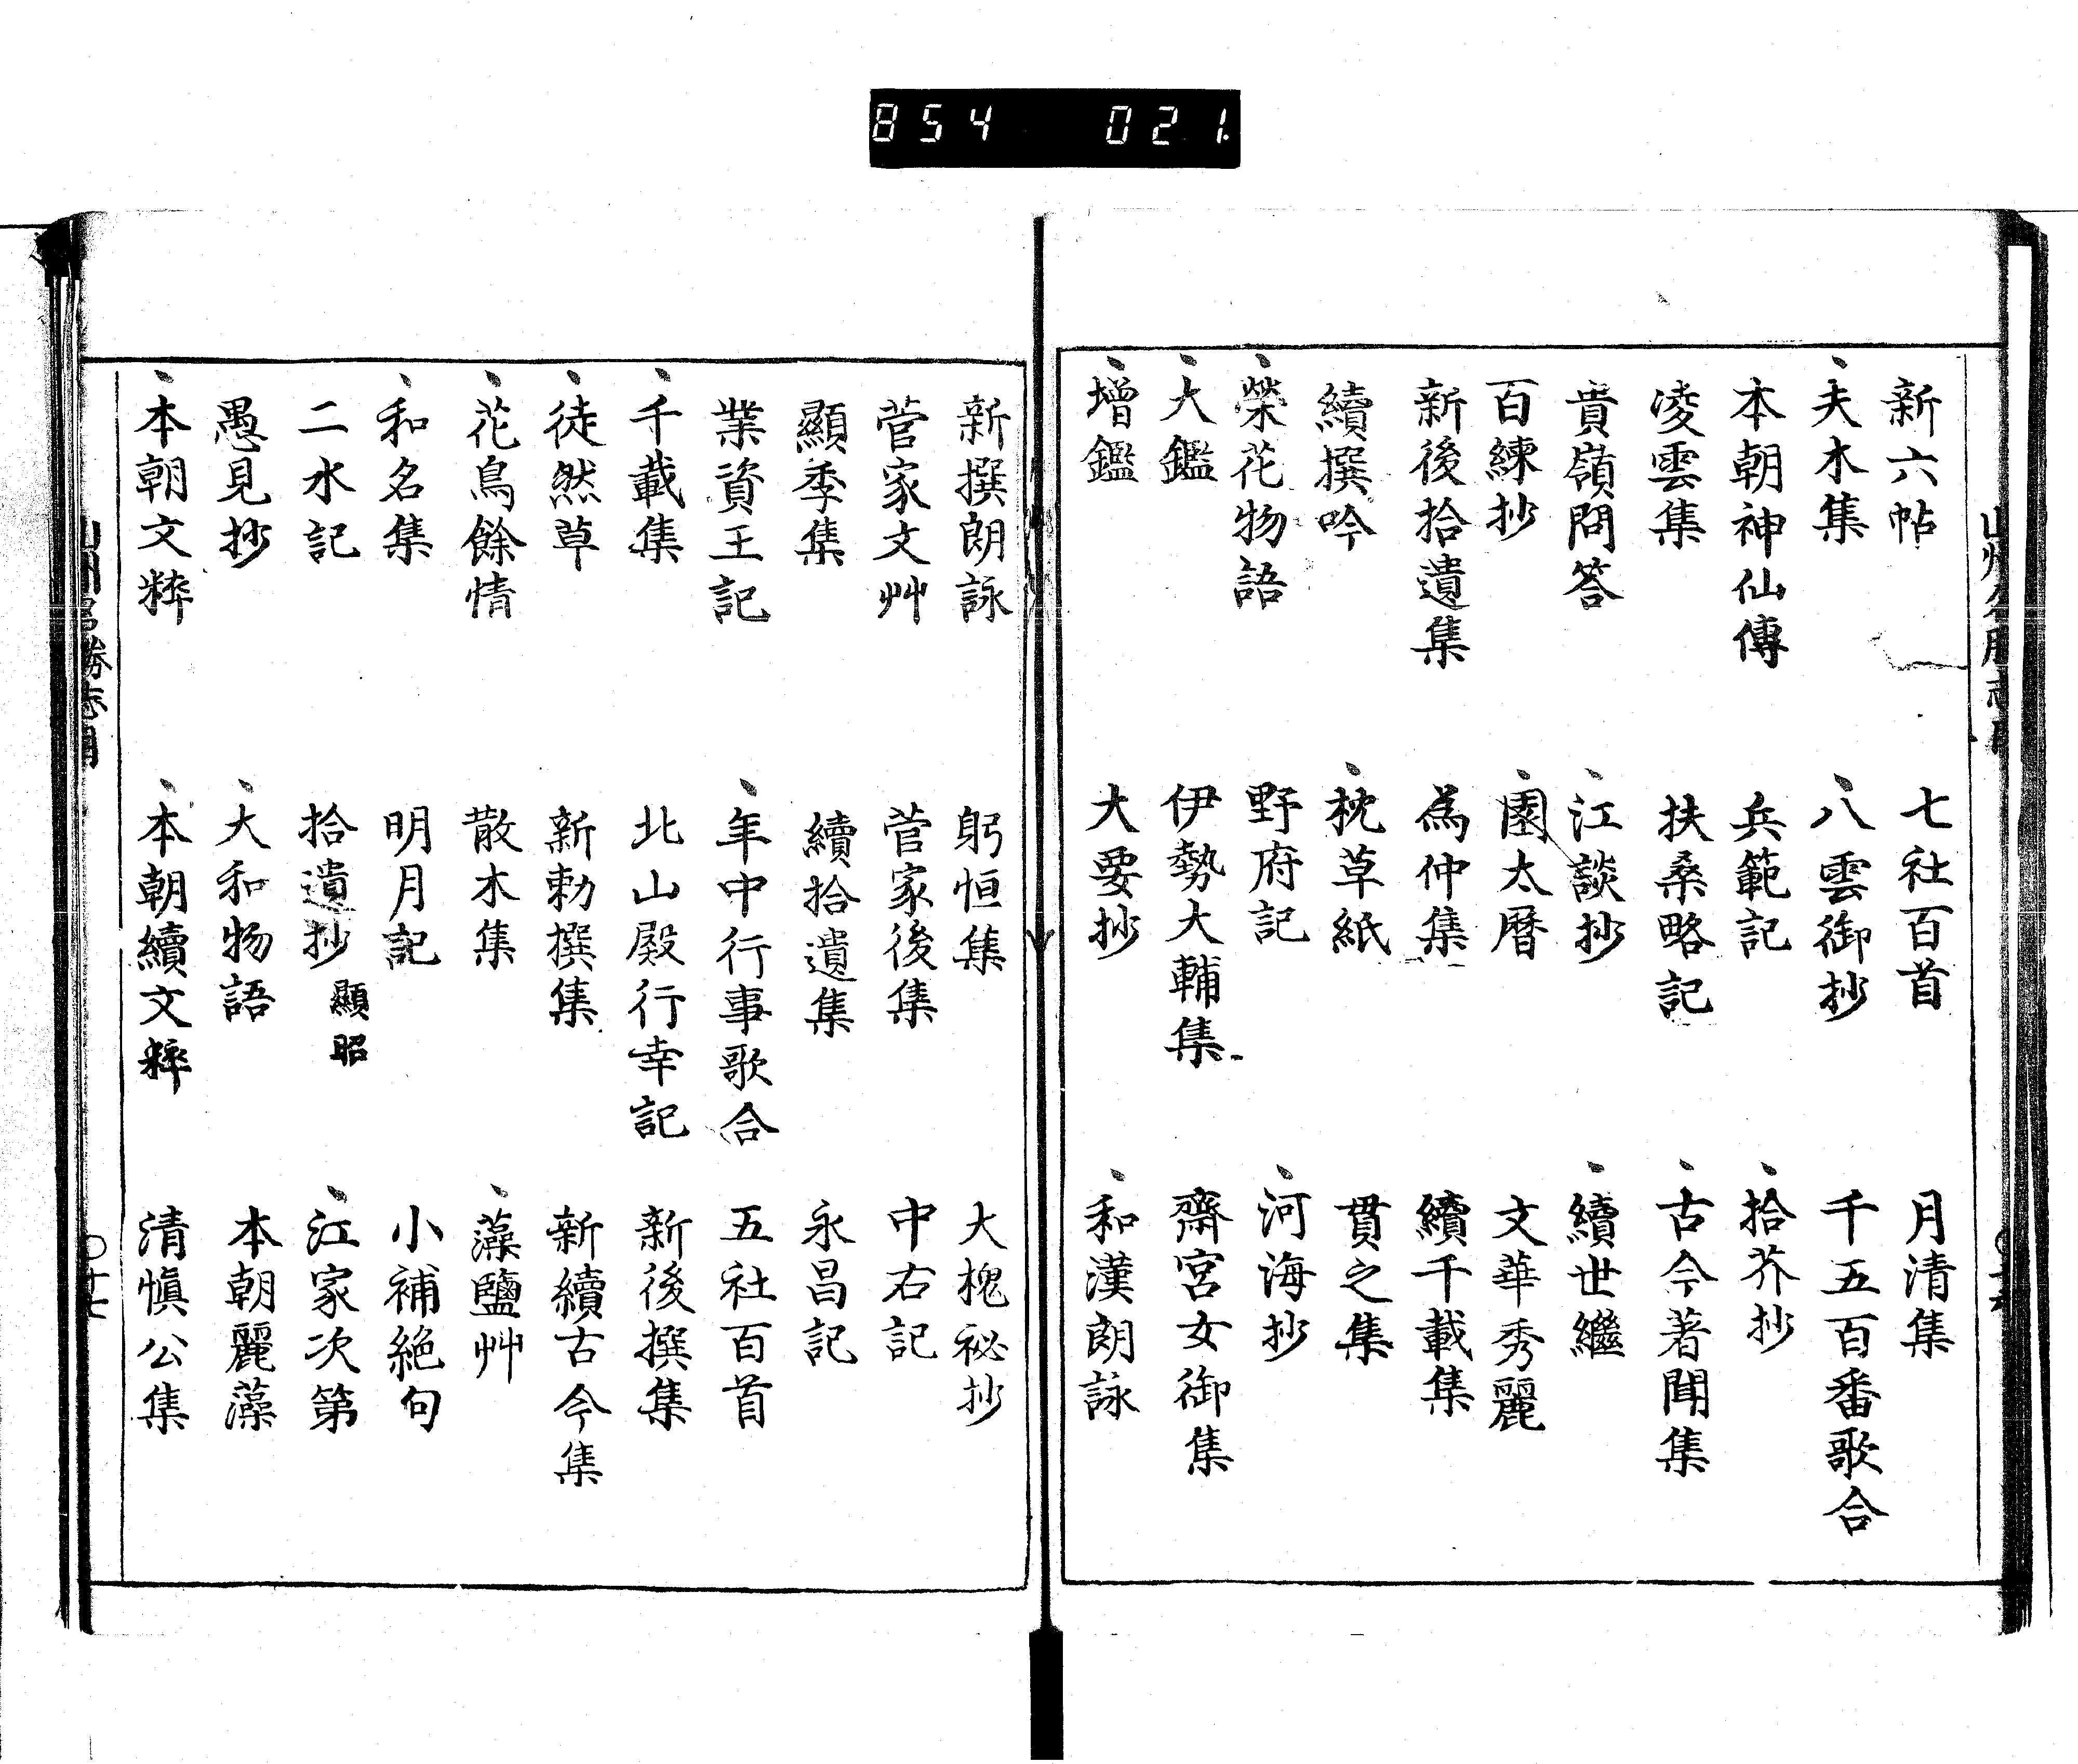 854 021
新六帖 七社百首 月清集
夫木集 八雲御抄 千五百番歌合
本朝神仙傳 兵範記 拾芥抄
凌雲集 扶桑略記 古今著聞集
貴嶺問答 江談抄 續世繼
百練抄 園太暦 文華秀麗
新後拾遺集 為仲集 續千載集
續撰吟 枕草紙 貫之集
榮花物語 野府記 河海抄
大鑑 伊勢大輔集 齋宮女御集
増鑑 大要抄 和漢朗詠
新撰朗詠 躬恒集 大槐祕抄
菅家文艸 菅家後集 中右記
顯季集 續拾遺集 永昌記
業資王記 年中行事歌合 五社百首
千載集 北山殿行幸記 新後撰集
徒然草 新勅撰集 新續古今集
花鳥餘情 散木集 藻鹽艸
和名集 明月記 小補絶句
二水記 拾遺抄 顯昭 江家次第
愚見抄 大和物語 本朝麗藻
本朝文粹 本朝續文粹 清愼公集
〇十七